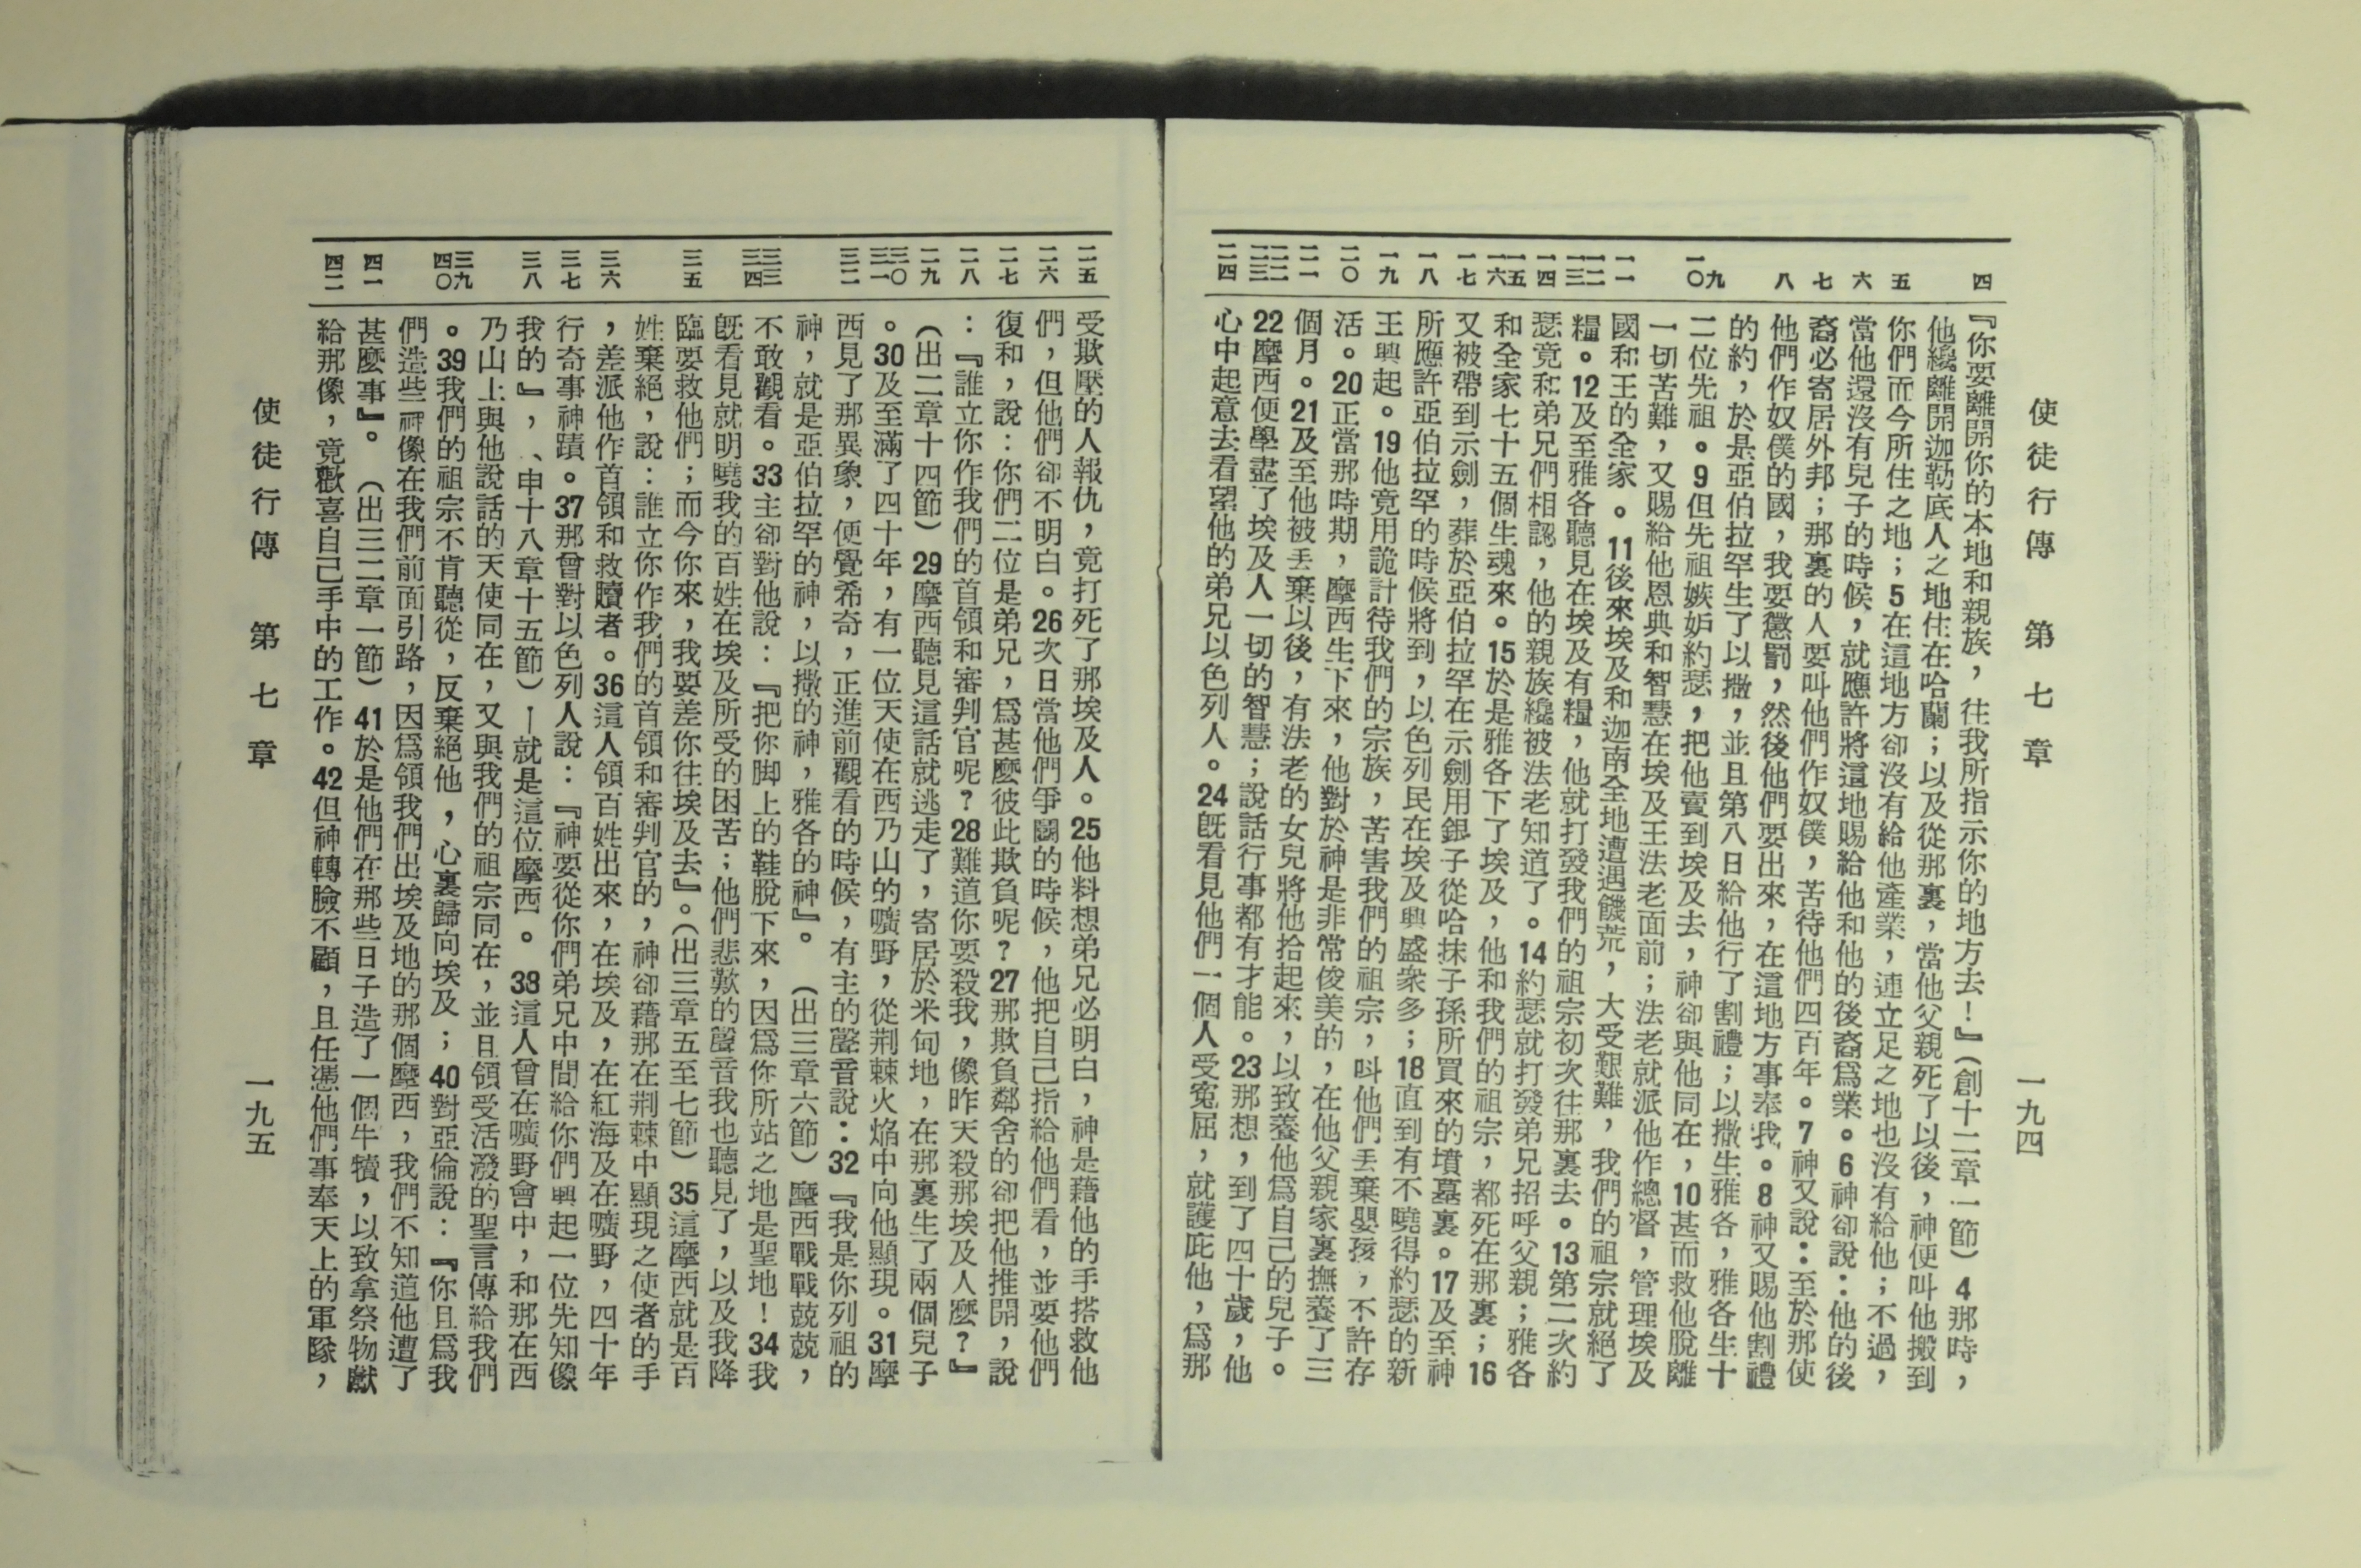 使徒行傳　第七章　一九四
四　五　六　七　八　九　一〇　一一　一二　一三　一四　一五　一六　一七　一八　一九　二〇　二一　二二　二三　二四
『你要離開你的本地和親族，往我所指示你的地方去！』（創十二章一節）4那時，
他纔離開迦勒底人之地住在哈蘭；以及從那裏，當他父親死了以後，神便叫他搬到
你們而今所住之地；5在這地方卻沒有給他產業，連立足之地也沒有給他；不過，
當他還沒有兒子的時候，就應許將這地賜給他和他的後裔爲業。6神卻說：他的後
裔必寄居外邦；那裏的人要叫他們作奴僕，苦待他們四百年。7神又說：至於那使
他們作奴僕的國，我要懲罰，然後他們要出來，在這地方事奉我。8神又賜他割禮
的約，於是亞伯拉罕生了以撒，並且第八日給他行了割禮；以撒生雅各，雅各生十
二位先祖。9但先祖嫉妒約瑟，把他賣到埃及去，神卻與他同在，10甚而救他脫離
一切苦難，又賜給他恩典和智慧在埃及王法老面前；法老就派他作總督，管理埃及
國和王的全家。11後來埃及和迦南全地遭遇饑荒，大受艱難，我們的祖宗就絕了
糧。12及至雅各聽見在埃及有糧，他就打發我們的祖宗初次往那裏去。13第二次約
瑟竟和弟兄們相認，他的親族纔被法老知道了。14約瑟就打發弟兄招呼父親；雅各
和全家七十五個生魂來。15於是雅各下了埃及，他和我們的祖宗，都死在那裏；16
又被帶到示劍，葬於亞伯拉罕在示劍用銀子從哈抹子孫所買來的墳墓裏。17及至神
所應許亞伯拉罕的時候將到，以色列民在埃及興盛衆多；18直到有不曉得約瑟的新
王興起。19他竟用詭計待我們的宗族，苦害我們的祖宗，叫他們丟棄嬰孩，不許存
活。20正當那時期，摩西生下來，他對於神是非常俊美的，在他父親家裏撫養了三
個月。21及至他被丟棄以後，有法老的女兒將他拾起來，以致養他爲自己的兒子。
22摩西便學盡了埃及人一切的智慧；說話行事都有才能。23那想，到了四十歲，他
心中起意去看望他的弟兄以色列人。24旣看見他們一個人受寃屈，就護庇他，爲那
二五　二六　二七　二八　二九　三〇　三一　三二　三三　三四　三五　三六　三七　三八　三九　四〇　四一　四二
受欺壓的人報仇，竟打死了那埃及人。25他料想弟兄必明白，神是藉他的手搭救他
們，但他們卻不明白。26次日當他們爭鬭的時候，他把自己指給他們看，並要他們
復和，說：你們二位是弟兄，爲甚麼彼此欺負呢？27那欺負鄰舍的卻把他推開，說
：『誰立你作我們的首領和審判官呢？28難道你要殺我，像昨天殺那埃及人麼？』
（出二章十四節）29摩西聽見這話就逃走了，寄居於米甸地，在那裏生了兩個兒子
。30及至滿了四十年，有一位天使在西乃山的曠野，從荆棘火焰中向他顯現。31摩
西見了那異象，便覺希奇，正進前觀看的時候，有主的聲音說：32『我是你列祖的
神，就是亞伯拉罕的神，以撒的神，雅各的神』。（出三章六節）摩西戰戰兢兢，
不敢觀看。33主卻對他說：『把你脚上的鞋脫下來，因爲你所站之地是聖地！34我
旣看見就明曉我的百姓在埃及所受的困苦；他們悲歎的聲音我也聽見了，以及我降
臨要救他們；而今你來，我要差你往埃及去』。（出三章五至七節）35這摩西就是百
姓棄絕，說：誰立你作我們的首領和審判官的，神卻藉那在荆棘中顯現之使者的手
，差派他作首領和救贖者。36這人領百姓出來，在埃及，在紅海及在曠野，四十年
行奇事神蹟。37那曾對以色列人說：『神要從你們弟兄中間給你們興起一位先知像
我的』，、申十八章十五節）—就是這位摩西。38這人曾在曠野會中，和那在西
乃山上與他說話的天使同在，又與我們的祖宗同在，並且領受活潑的聖言傳給我們
。39我們的祖宗不肯聽從，反棄絕他，心裏歸向埃及；40對亞倫說：『你且爲我
們造些神像在我們前面引路，因爲領我們出埃及地的那個摩西，我們不知道他遭了
甚麼事』。（出三二章一節）41於是他們在那些日子造了一個牛犢，以致拿祭物獻
給那像，竟歡喜自己手中的工作。42但神轉臉不顧，且任憑他們事奉天上的軍隊，
使徒行傳　第七章　一九五